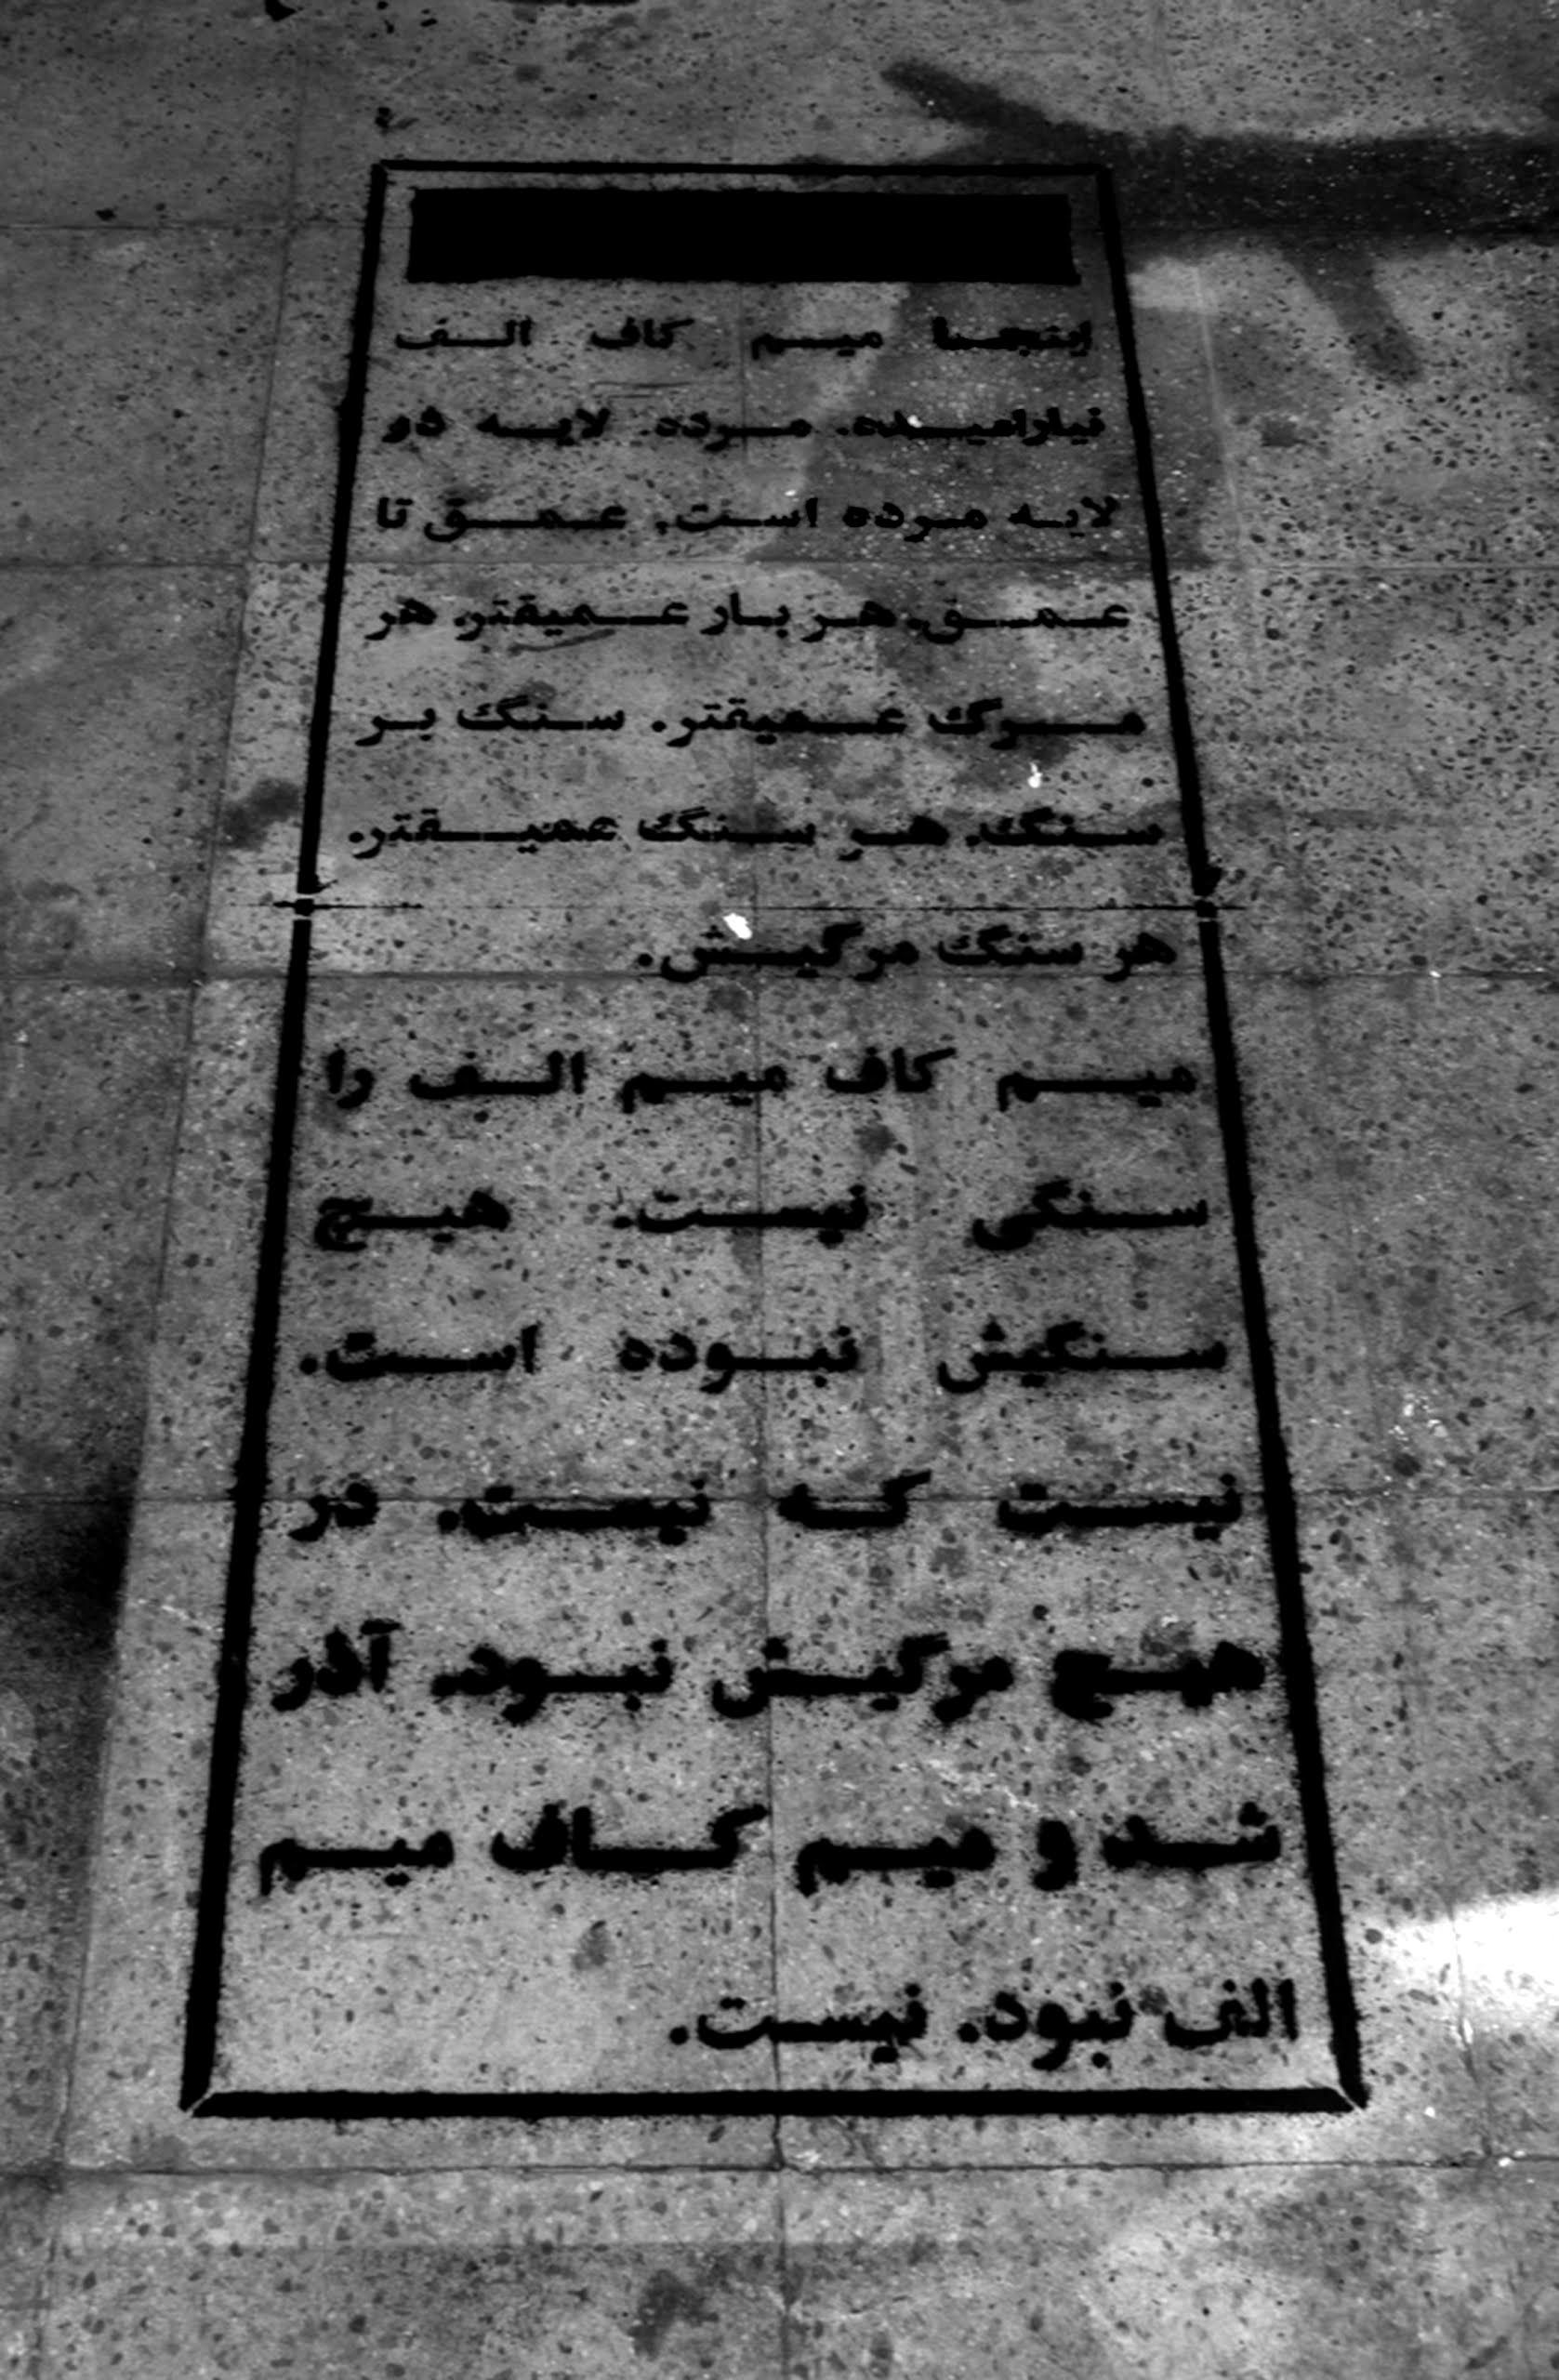 اینجا میم کاف الف
نیارامیده. مرده. لایه دو
لایه مرده است. عمق تا
عمق. هر بار عمیقتر. هر
مرگ عمیقتر. سنگ بر
سنگ. هر سنگ عمیقتر.
هر سنگ مرگیش.
میم کاف میم الف را
سنگی نیست. هیچ
سنگیش نبوده است.
نیست که نیست. در
هیچ مرگیش نبود. آذر
شد و میم کاف میم
الف نبود. نیست.